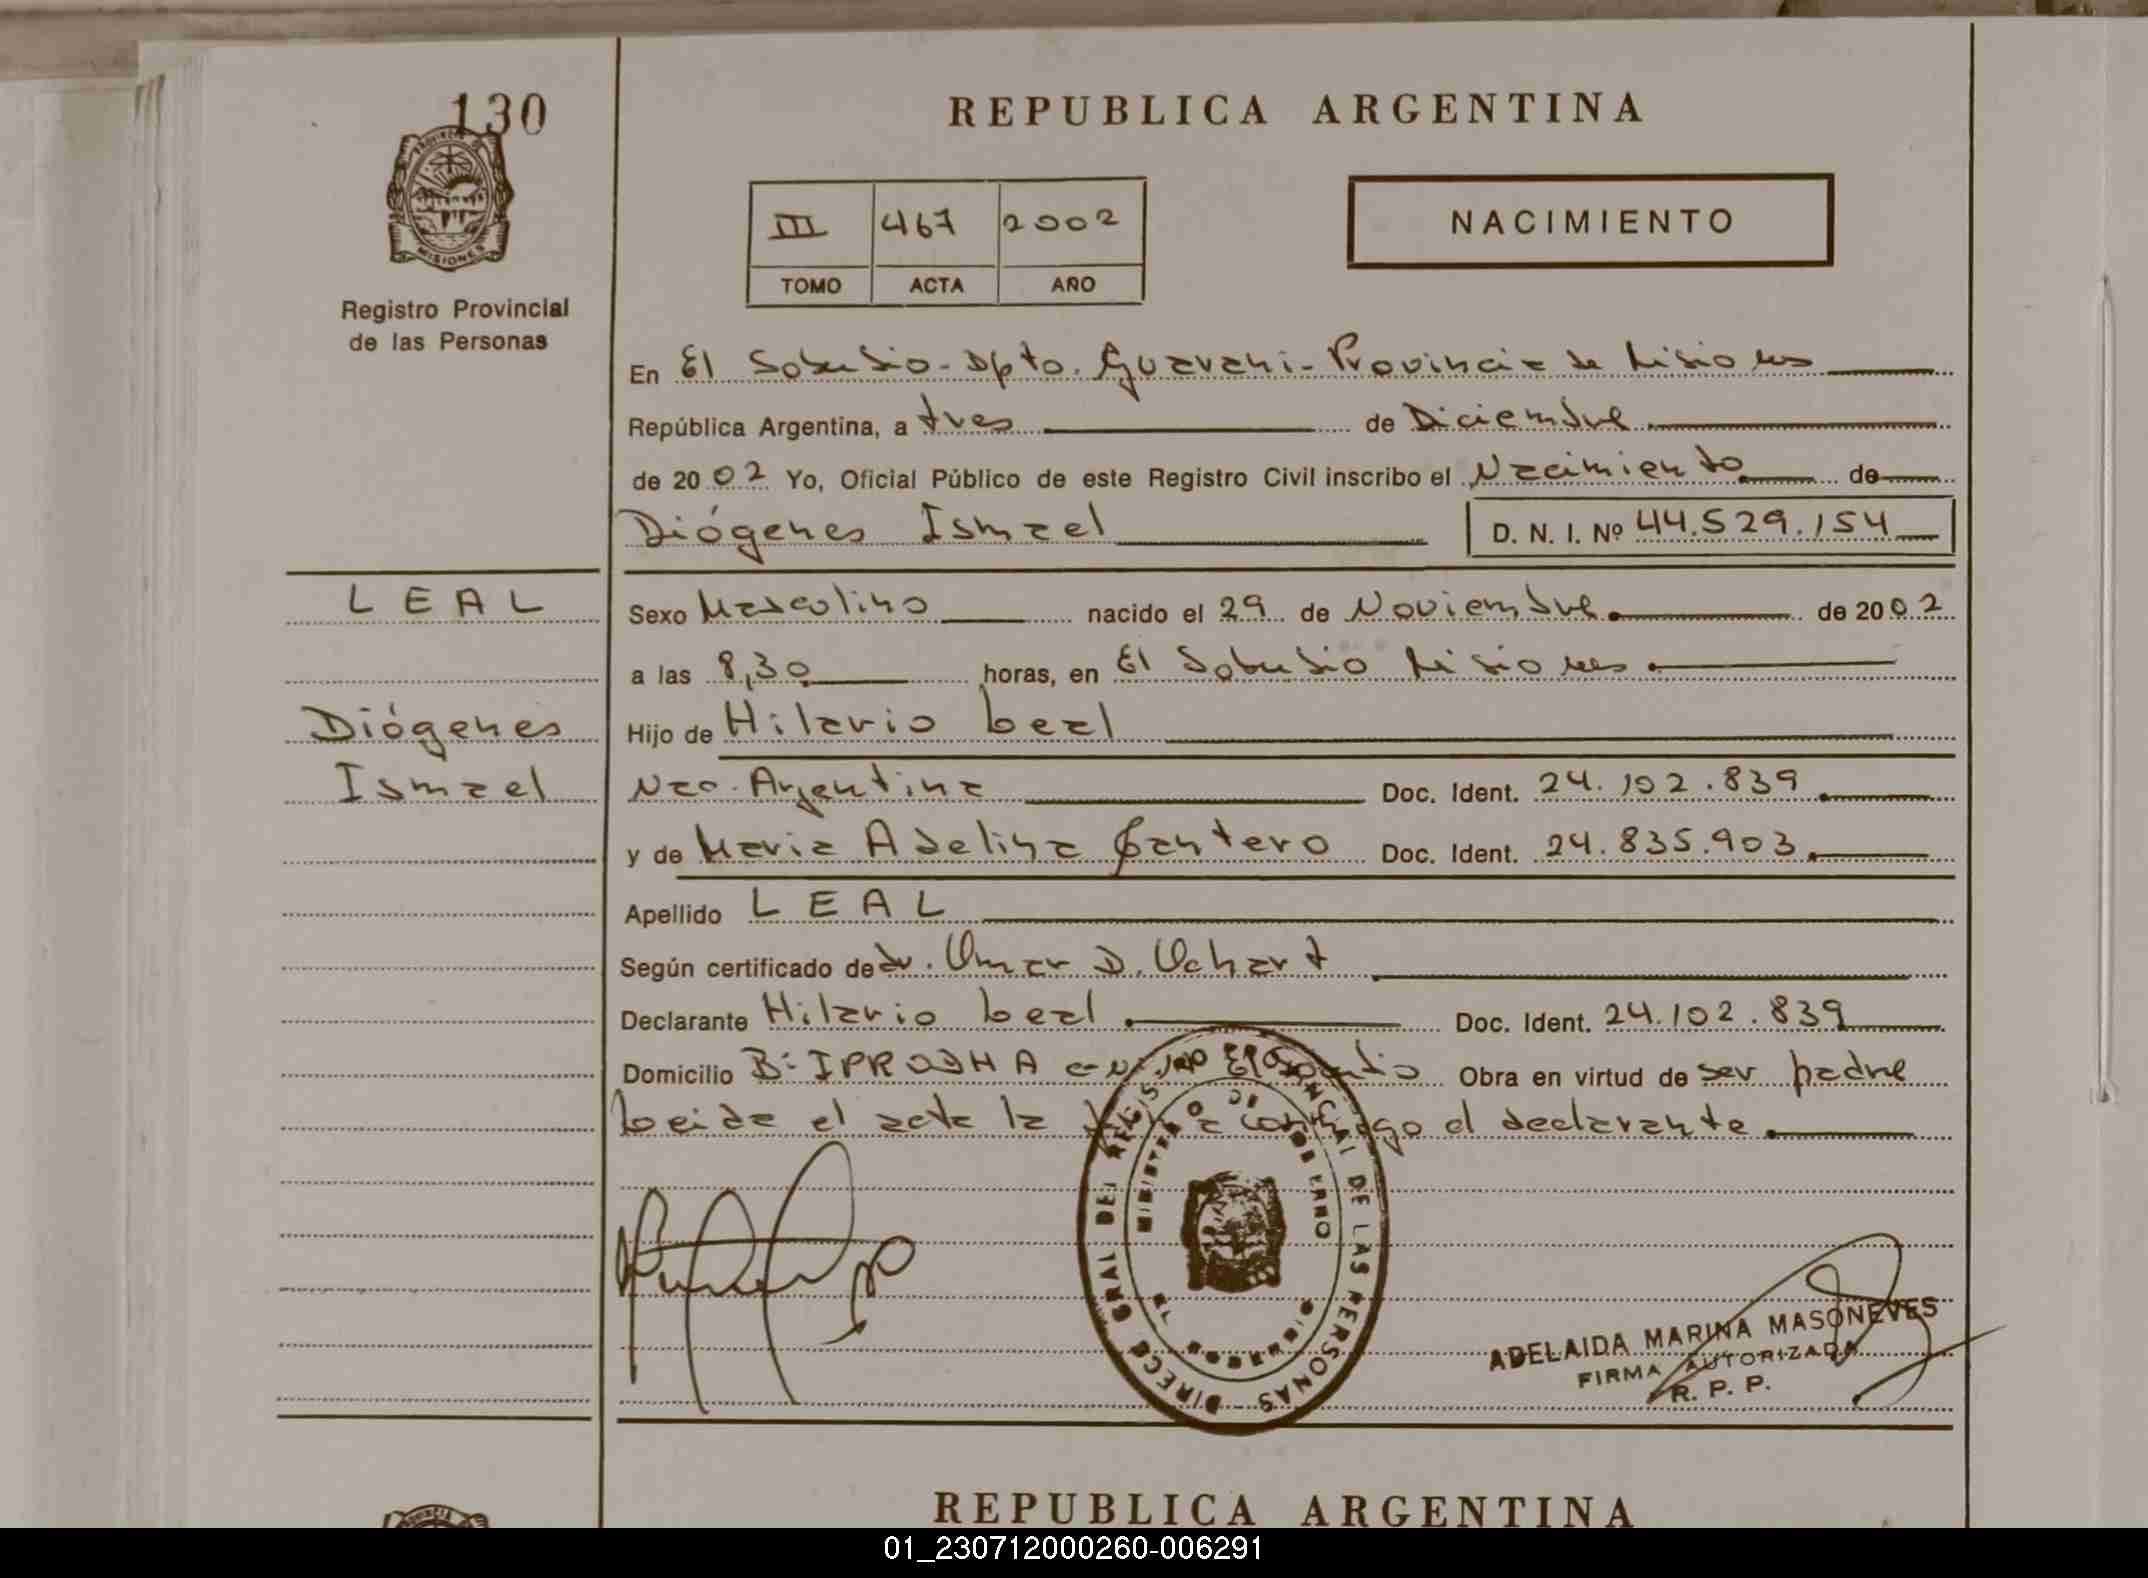 130
PROVINCIA DE
MISIONES
Registro Provincial
de las Personas
REPUBLICA ARGENTINA
III 467 2002
TOMO ACTA AÑO
NACIMIENTO
En El Soberbio - Dpto. Guarani - Provincia de Misiones
República Argentina, a tres de Diciembre
de 2002 Yo, Oficial Público de este Registro Civil inscribo el Nacimiento de
Diógenes Ismael D. N. I. Nº 44.529.154
LEAL
Diógenes
Ismael
Sexo Masculino nacido el 29 de Noviembre de 2002
a las 8,30 horas, en El Soberbio Misiones
Hijo de Hilario Leal
Nac. Argentina Doc. Ident. 24.102.839
y de Maria Adelina Cantero Doc. Ident. 24.835.903
Apellido LEAL
Según certificado de Dr. Omar D. Ochart
Declarante Hilario Leal Doc. Ident. 24.102.839
Domicilio Bº IPRODHA El Soberbio Obra en virtud de ser padre
Leida el acta la conmigo el declarante
DIRECC GRAL DEL REGIS PROVINCIAL DE LAS PERSONAS
MINISTERIO DE GOBIERNO
ADELAIDA MARINA MASONEVES
FIRMA AUTORIZADA
R. P. P.
REPUBLICA ARGENTINA
01_230712000260-006291